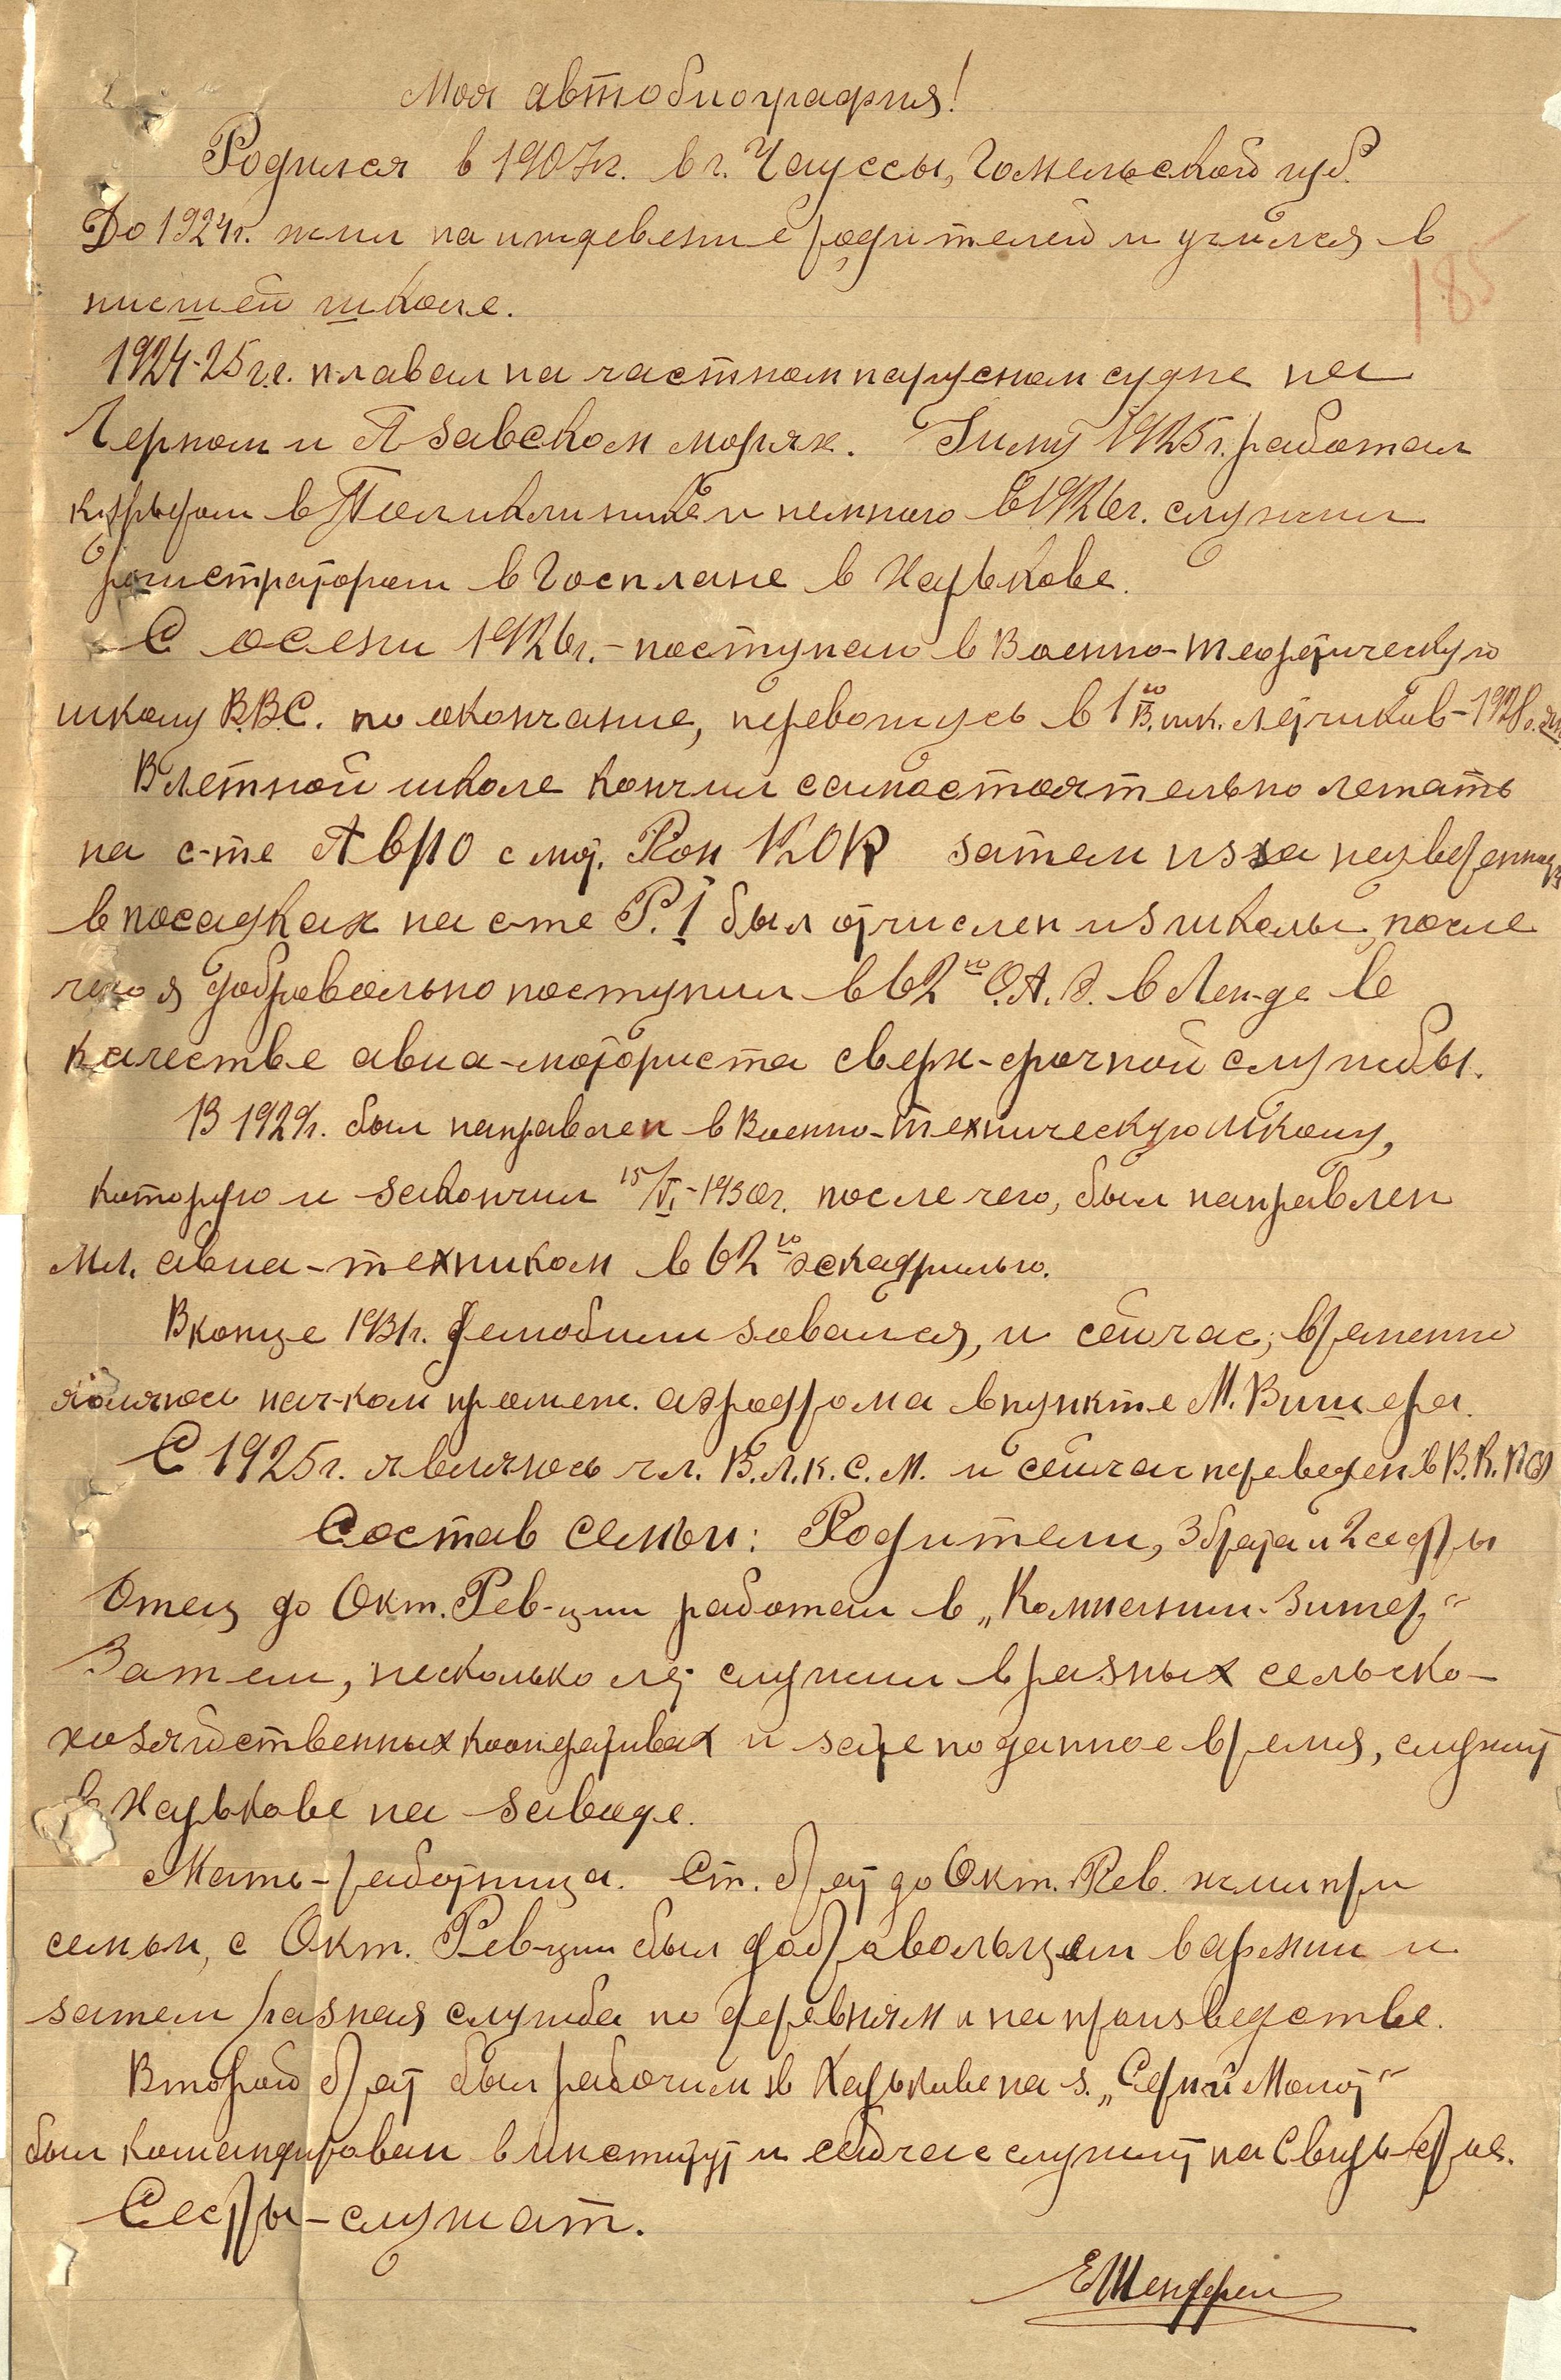 Моя автобиография!
Родился в 1907г. в г. Чауссы, Гомельской губ.
До 1924г. жил на иждевение родителей и учился в
нисшей школе.
185
1924-25 г.г. плавал на частном парусном судне на
Черном и Азавском морях. Зиму 1925г. работал
курьером в Поликлинике и немного в 1926г. служил
регистратором в Госплане в Харькове.
С осени 1926г. - поступаю в Военно-теоретическую
школу В.В.С. по окончание, перевожусь в 1ую В. шк. летчиков - 1928г.
В летной школе кончил самостоятельно летать
на с-те Авро с мот. Рон затем из за неуверенности
в посадках на с-те Р.1 был отчислен из школы, после
чего я добровольно поступил в 62ую О.А.Э. в Лен-де в
качестве авиа-моториста сверх-срочной службы.
В 1929г. был направлен в Военно-техническую школу,
которую и закончил 15/VI-1930г. после чего, был направлен
мл. авиа-техником в 62ую эскадрилью.
В конце 1931г. демобилизовался, и сейчас, временно
являюсь нач-ком промеж. аэродрома в пункте М. Вишера.
С 1925г. являюсь чл. В.Л.К.С.М. и сейчас переведен в В.К.П(б)
Состав семьи: Родители, 3 брата и 2 сестры
Отец до Окт. Рев-ции работал в „Компании-Зингер“
Затем, несколько лет служил в разных сельско-
хозяйственных кооперативах и затем по данное время, служит
в Харькове на заводе.
Мать - работница. Ст. брат до Окт. Рев. жил при
семьи, с Окт. Рев-ции был добровольцем в армии и
затем разная служба по деревням и на произведстве.
Второй брат был рабочим в Харькиве на з. „Серп и Молот“
был командирован в институт и сейчас служит на Свирьстрое.
Сестры - служат.
ЕШенффел